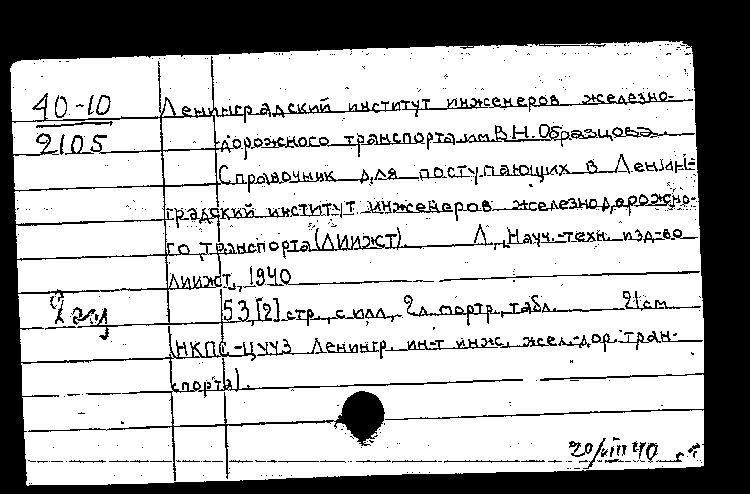 40-10
2105
Ленинградский институт инженеров железно-
дорожного транспорта им. В.Н. Образцова.
Справочник для поступающих в Ленин-
градский институт инженеров железнодорожно-
го транспорта (ЛИИЖТ). Л., Науч.-техн. изд-во
ЛИИЖТ, 1940
53,[2] стр., с илл., 2 л. портр., табл. 21 см.
(НКПС-ЦУУЗ Ленингр. ин-т инж. жел.-дор. тран-
спорта).
2 экз
20/VIII 40